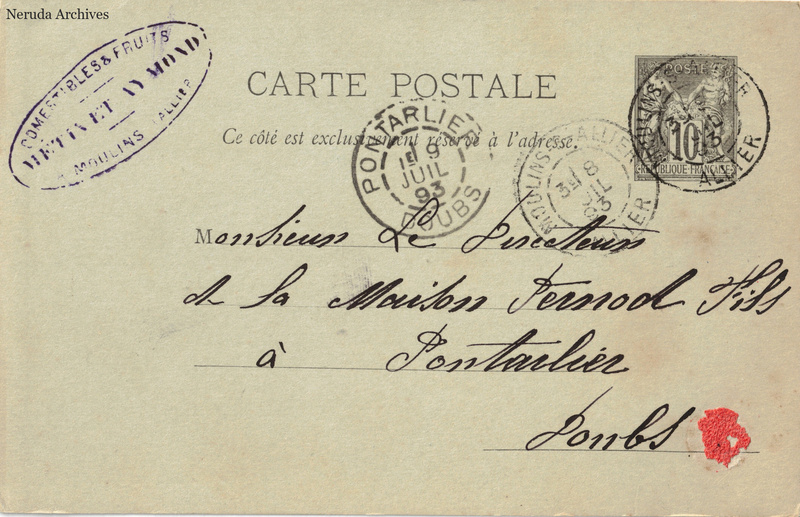 Neruda Archives
COMESTIBLES & FRUITS
METIN ET AYMOND
A MOULINS ALLIER
CARTE POSTALE
Ce côté est exclusivement réservé à l'adresse.
POSTE
10
RÉPUBLIQUE FRANÇAISE
MOULINS
ALLIER
MOULINS S. ALLIER
3E
8
JUIL
93
ALLIER
PONTARLIER
1E 9
JUIL
93
DOUBS
Monsieur Le Directeur
de la Maison Pernod Fils
à Pontarlier
Doubs